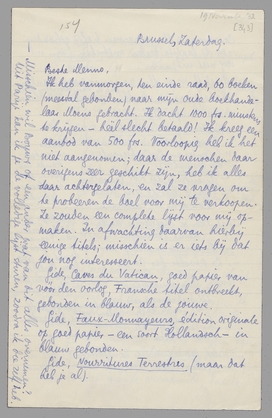 19 November 32
154
Brussel, Zaterdag.
Beste Menno,
Ik heb vanmorgen, ten einde raad, 60 boeken
(meestal gebonden) naar mijn oude boekhande-
laar Moens gebracht. Ik dacht 1000 frs. minstens
te krijgen – heil slecht betaald! Ik kreeg een
aanbod van 500 frs. Voorloopig heb ik het
niet aangenomen; daar de menschen daar
overigens zeer geschikt zijn, heb ik alles
daar achtergelaten, en zal ze vragen om
te probeeren de boel voor mij te verkoopen.
Ze zouden een complete lijst voor mij op-
maken. In afwachting daarvan hierbij
eenige titels; misschien is er iets bij dat
jou nog interesseert.
Gide, Caves du Vatican, goed papier van
vóór den oorlog, Fransche titel ontbreekt,
gebonden in blauw, als de jouwe.
Gide, Faux-Monnayeurs, edition originale
op goed papier – een soort Hollandsch – in
blauw gebonden.
Gide, Nourritures Terrestres (maar dat
heb je al).
– Misschien wil Bouws of een ander iets van dit alles overnemen?
Uit Parijs kan ik je de volledige lijst sturen, zoodra ik die zelf heb.